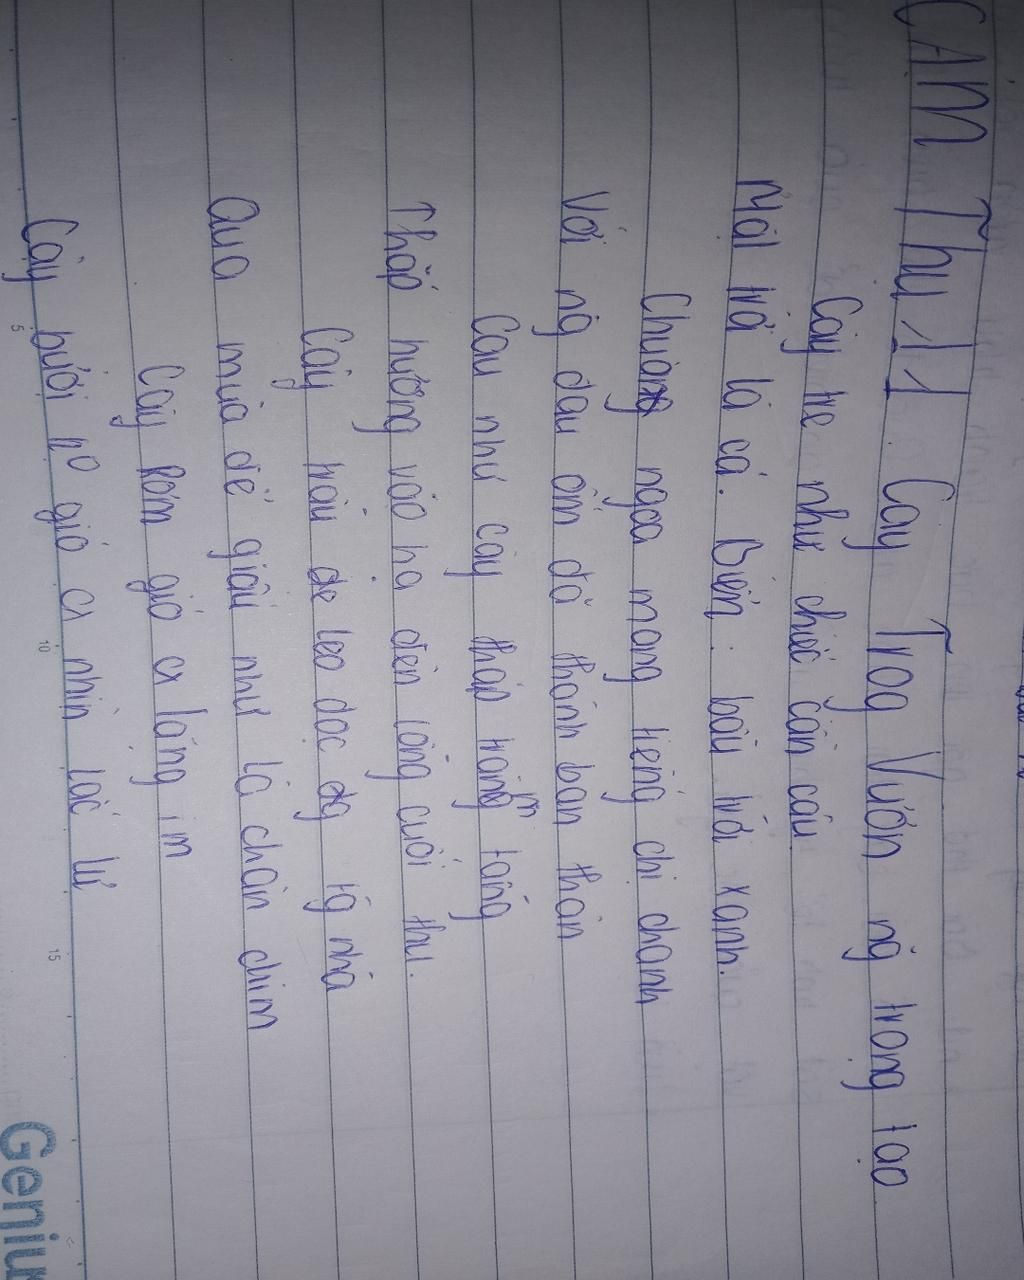 CẢM Thụ 11. Cây Trog Vườn ng̀ trong tạo
Cây tre như chiếc cần câu
Mỗi trả là cá. Biển: bầu trời xanh.
Chuông ngọa mang tiếng chị chanh
Với ng̀ đau ốm đã thành bạn thân
Cau như cây tháp trăng tăng
Thắp hương vào hạ đến tầng cuối thu.
Cây trầu leo dọc tg̀ nhà
Qua mùa để giấu như là chân chim
Cây Rơm gió ơi lặng im
Cây bưởi hº gió ơi nhìn lắc lư
5
10
15
Geniu